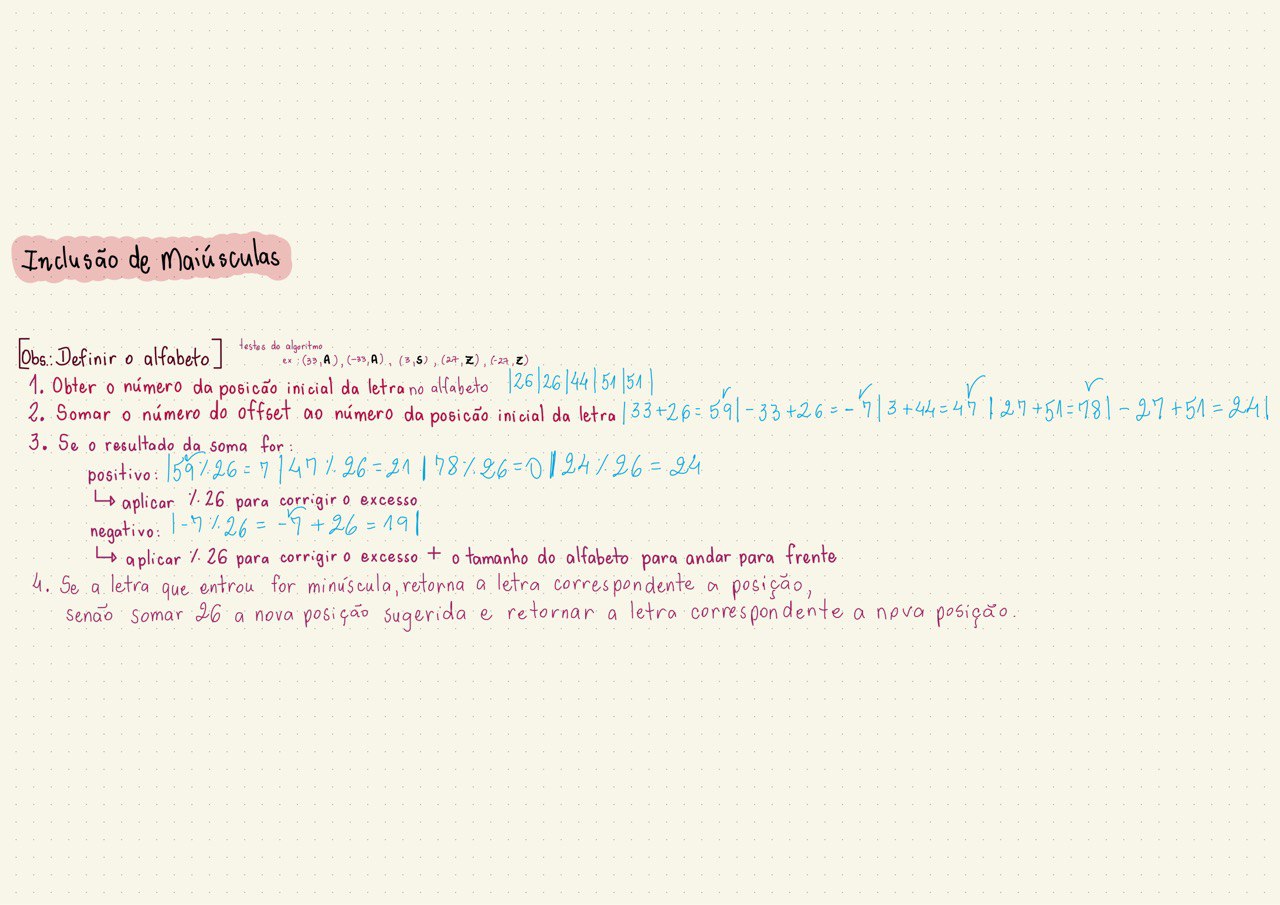 Inclusão de Maiúsculas
[Obs.: Definir o alfabeto] testes do algoritmo
ex: (33,A), (-33,A), (3,S), (27,Z), (-27,Z)
1. Obter o número da posicão inicial da letra no alfabeto |26|26|44|51|51|
2. Somar o número do offset ao número da posicão inicial da letra |33+26=59|-33+26=-7|3+44=47|27+51=78|-27+51=24|
3. Se o resultado da soma for:
positivo: |59%26=7|47%26=21|78%26=0|24%26=24
↳ aplicar %26 para corrigir o excesso
negativo: |-7%26=-7+26=19|
↳ aplicar %26 para corrigir o excesso + o tamanho do alfabeto para andar para frente
4. Se a letra que entrou for minúscula, retorna a letra correspondente a posição,
senão somar 26 a nova posição sugerida e retornar a letra correspondente a nova posição.